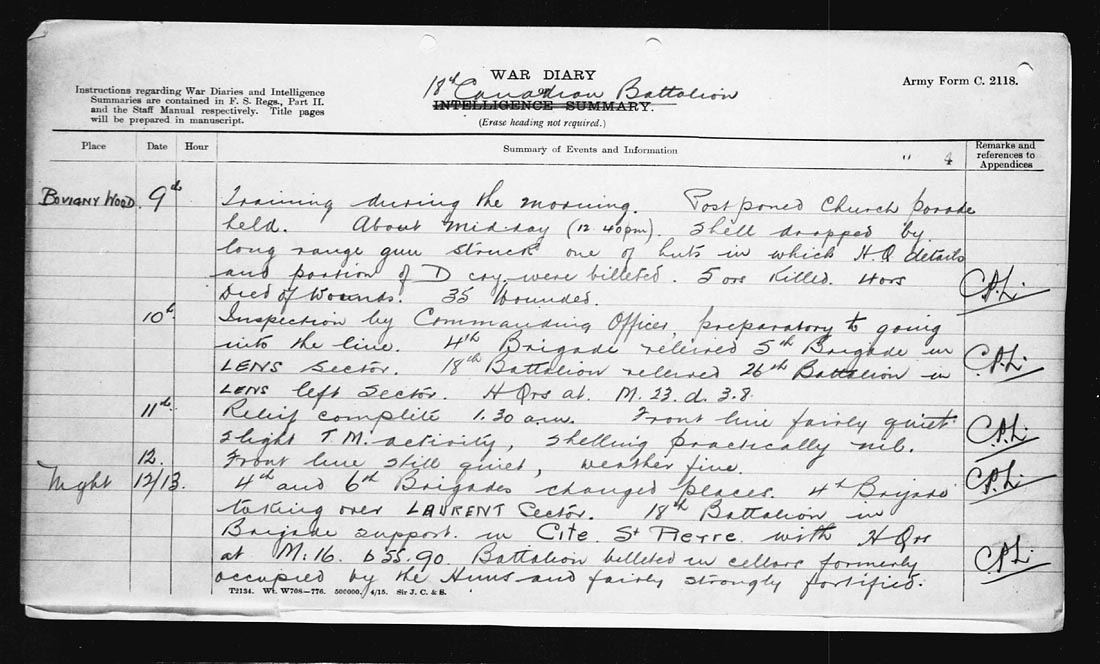 WAR DIARY
18th Canadian Battalion
INTELLIGENCE SUMMARY.
(Erase heading not required.)
Army Form C. 2118.
Instructions regarding War Diaries and Intelligence
Summaries are contained in F. S. Regs., Part II.
and the Staff Manual respectively. Title pages
will be prepared in manuscript.
Place Date Hour Summary of Events and Information " 4 Remarks and
references to
Appendices
BOVIGNY WOOD. 9th Training during the morning. Postponed Church parade
held. About Mid-day (12.40pm). Shell dropped by
long range gun struck one of huts in which H.Q details
and portion of D coy. were billeted. 5 ors Killed. 4 ors
Died of Wounds. 35 Wounded. C.P.L.
10th Inspection by Commanding Officer, preparatory to going
into the line. 4th Brigade relieved 5th Brigade in
LENS Sector. 18th Battalion relieved 26th Battalion in C.P.L.
LENS left Sector. H Qrs at. M. 23. d. 3.8.
11th Relief complete 1.30 a.m. Front line fairly quiet
slight T.M. activity, shelling practically nil. C.P.L.
12. Front line still quiet, weather fine.
Night 12/13. 4th and 6th Brigades changed places. 4th Brigade C.P.L.
taking over LAURENT Sector. 18th Battalion in
Brigade support. in Cite St Pierre with H Qrs
at M.16. b 55.90. Battalion billeted in cellars formerly C.P.L.
occupied by the Huns and fairly strongly fortified.
T2134. Wt. W708—776. 500000. 4/15. Sir J. C. & S.